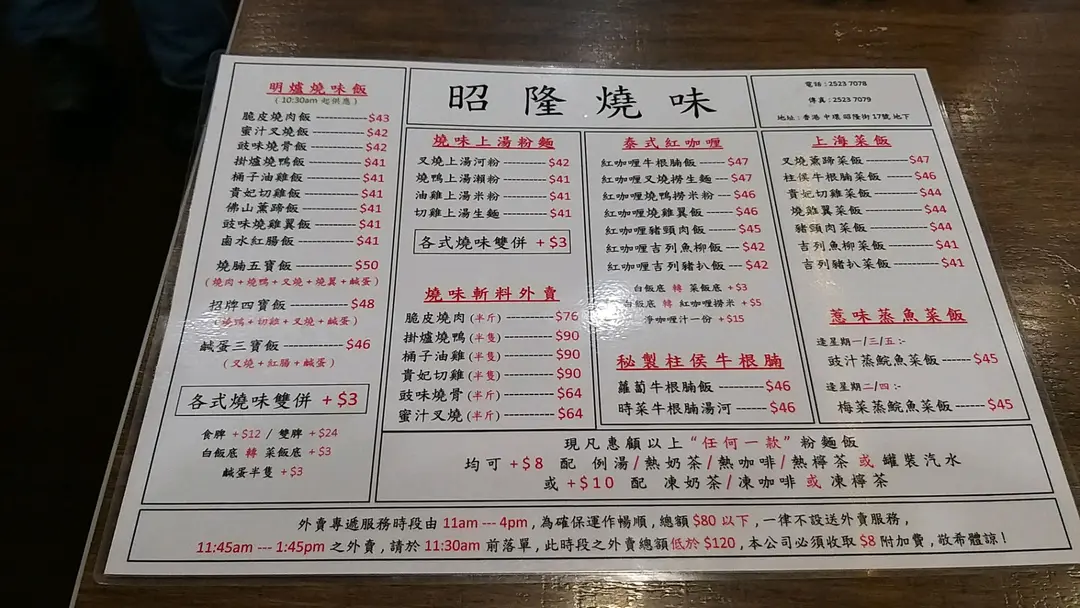 明爐燒味飯
(10:30am 起供應)
脆皮燒肉飯 ---------- $43
蜜汁叉燒飯 ---------- $42
豉味燒骨飯 ---------- $42
掛爐燒鴨飯 ---------- $41
桶子油雞飯 ---------- $41
貴妃切雞飯 ---------- $41
佛山薰蹄飯 ---------- $41
豉味燒雞翼飯 ---------- $41
鹵水紅腸飯 ---------- $41
燒腩五寶飯 ---------- $50
(燒肉+燒鴨+叉燒+燒翼+鹹蛋)
招牌四寶飯 ---------- $48
(燒鴨+切雞+叉燒+鹹蛋)
鹹蛋三寶飯 ---------- $46
(叉燒+紅腸+鹹蛋)
各式燒味雙併 + $3
食髀 +$12 / 雙髀 +$24
白飯底 轉 菜飯底 +$3
鹹蛋半隻 +$3
昭隆燒味
電話:2523 7078
傳真:2523 7079
地址:香港 中環 昭隆街 17號 地下
燒味上湯粉麵
叉燒上湯河粉 ---------- $42
燒鴨上湯瀨粉 ---------- $41
油雞上湯米粉 ---------- $41
切雞上湯生麵 ---------- $41
各式燒味雙併 + $3
燒味斬料外賣
脆皮燒肉 (半斤) ---------- $76
掛爐燒鴨 (半隻) ---------- $90
桶子油雞 (半隻) ---------- $90
貴妃切雞 (半隻) ---------- $90
豉味燒骨 (半斤) ---------- $64
蜜汁叉燒 (半斤) ---------- $64
泰式紅咖喱
紅咖喱牛根腩飯 ----- $47
紅咖喱叉燒撈生麵 -- $47
紅咖喱燒鴨撈米粉 --- $46
紅咖喱燒雞翼飯 ----- $46
紅咖喱豬頸肉飯 ----- $45
紅咖喱吉列魚柳飯 --- $42
紅咖喱吉列豬扒飯 --- $42
白飯底 轉 菜飯底 +$3
白飯底 轉 紅咖喱撈米 +$5
淨咖喱汁一份 +$15
秘製柱侯牛根腩
蘿蔔牛根腩飯 ---------- $46
時菜牛根腩湯河 ------ $46
上海菜飯
叉燒薰蹄菜飯 -------- $47
柱侯牛根腩菜飯 ----- $46
貴妃切雞菜飯 -------- $44
燒雞翼菜飯 ---------- $44
豬頸肉菜飯 ---------- $44
吉列魚柳菜飯 -------- $41
吉列豬扒菜飯 -------- $41
惹味蒸魚菜飯
逢星期一/三/五:-
豉汁蒸鯇魚菜飯 ------ $45
逢星期二/四:-
梅菜蒸鯇魚菜飯 ------ $45
現凡惠顧以上“任何一款”粉麵飯
均可 +$8 配 例湯/熱奶茶/熱咖啡/熱檸茶 或 罐裝汽水
或 +$10 配 凍奶茶/凍咖啡 或 凍檸茶
外賣專遞服務時段由 11am --- 4pm , 為確保運作暢順 , 總額 $80 以下 , 一律不設送外賣服務 ,
11:45am --- 1:45pm 之外賣 , 請於 11:30am 前落單 , 此時段之外賣總額低於 $120 , 本公司必須收取 $8 附加費 , 敬希體諒 !